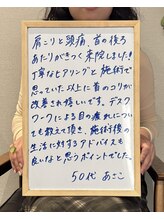 肩こりと頭痛、首の後ろ
あたりがきつく来院しました!
丁寧なヒアリングと施術で
思っていた以上に首のコリが
改善され嬉しいです。デスク
ワークによる目の疲れについ
ても教えて頂き、施術後の
生活に対するアドバイスも
良いなと思うポイントでした。
50代 あさこ